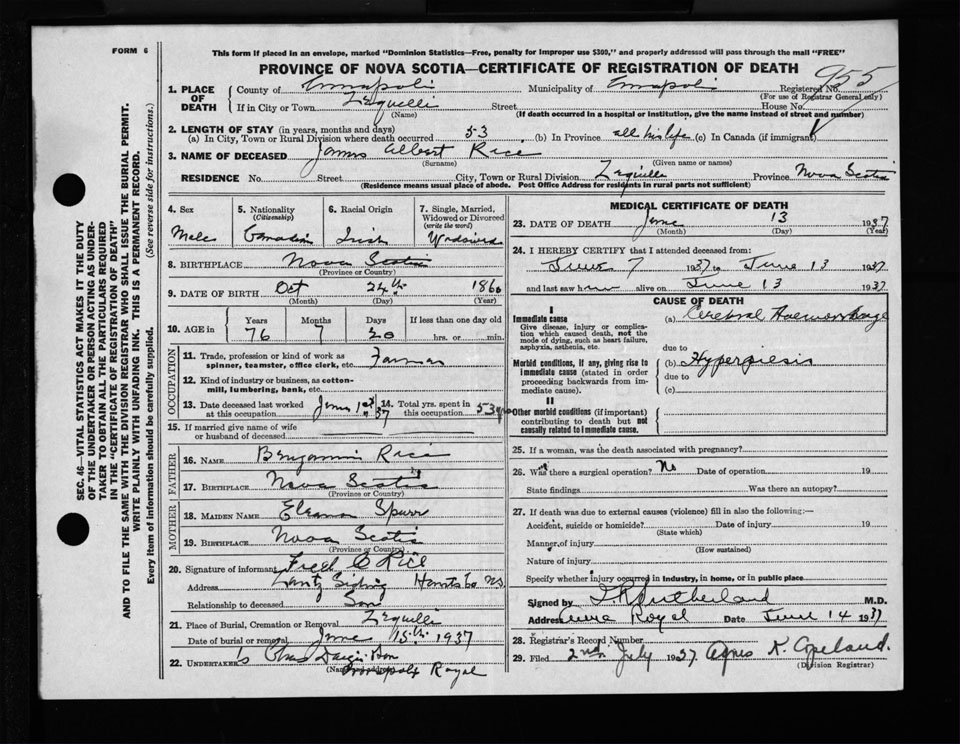 FORM 6
This form if placed in an envelope, marked "Dominion Statistics—Free, penalty for improper use $300," and properly addressed will pass through the mail "FREE"
PROVINCE OF NOVA SCOTIA—CERTIFICATE OF REGISTRATION OF DEATH
955
1. PLACE OF DEATH
County of Annapolis Municipality of Annapolis Registered No.
(For use of Registrar General only)
If in City or Town Lequille Street House No.
(Name) (If death occurred in a hospital or institution, give the name instead of street and number)
2. LENGTH OF STAY (in years, months and days)
(a) In City, Town or Rural Division where death occurred 53 (b) In Province all his life (c) In Canada (if immigrant)
3. NAME OF DECEASED James Albert Rice
(Surname) (Given name or names)
RESIDENCE No. Street City, Town or Rural Division Lequille Province Nova Scotia
(Residence means usual place of abode. Post Office Address for residents in rural parts not sufficient)
4. Sex
Male
5. Nationality
(Citizenship)
Canadian
6. Racial Origin
Irish
7. Single, Married, Widowed or Divorced
(write the word)
Widowed
8. BIRTHPLACE Nova Scotia
(Province or Country)
9. DATE OF BIRTH Oct 24th 1860
(Month) (Day) (Year)
10. AGE in Years Months Days If less than one day old
76 7 20 hrs. or min.
OCCUPATION
11. Trade, profession or kind of work as
spinner, teamster, office clerk, etc. Farmer
12. Kind of industry or business, as cotton-
mill, lumbering, bank, etc.
13. Date deceased last worked at this occupation June 1st 37
14. Total yrs. spent in this occupation 53 yrs
15. If married give name of wife
or husband of deceased
FATHER
16. NAME Benjamin Rice
17. BIRTHPLACE Nova Scotia
(Province or Country)
MOTHER
18. MAIDEN NAME Eleanor Spurr
19. BIRTHPLACE Nova Scotia
(Province or Country)
20. Signature of informant Fred C Rice
Address Lantz Siding Hants Co NS
Relationship to deceased Son
21. Place of Burial, Cremation or Removal Lequille
Date of burial or removal June 15th 1937
22. UNDERTAKER
(Name and address) Annapolis Royal
MEDICAL CERTIFICATE OF DEATH
23. DATE OF DEATH June 13 1937
(Month) (Day) (Year)
24. I HEREBY CERTIFY that I attended deceased from:
June 7 1937 to June 13 1937
and last saw him alive on June 13 1937
CAUSE OF DEATH
I
Immediate cause
Give disease, injury or complication which caused death, not the mode of dying, such as heart failure, asphyxia, asthenia, etc.
(a) Cerebral Haemorrhage
due to
Morbid conditions, if any, giving rise to immediate cause (stated in order proceeding backwards from immediate cause).
(b) Hyperpiesis
due to
(c)
II
Other morbid conditions (if important) contributing to death but not causally related to immediate cause.
25. If a woman, was the death associated with pregnancy?
26. Was there a surgical operation? No Date of operation 19
State findings Was there an autopsy?
27. If death was due to external causes (violence) fill in also the following:—
Accident, suicide or homicide? Date of injury 19
(State which)
Manner of injury
(How sustained)
Nature of injury
Specify whether injury occurred in industry, in home, or in public place
Signed by Sutherland M.D.
Address Anna Royal Date June 14 1937
28. Registrar's Record Number
29. Filed 2nd July 1937 Agnes K. Copeland.
(Division Registrar)
SEC. 46—VITAL STATISTICS ACT MAKES IT THE DUTY
OF THE UNDERTAKER OR PERSON ACTING AS UNDER-
TAKER TO OBTAIN ALL THE PARTICULARS REQUIRED
IN THE "CERTIFICATE OF REGISTRATION OF DEATH"
AND TO FILE THE SAME WITH THE DIVISION REGISTRAR WHO SHALL ISSUE THE BURIAL PERMIT.
WRITE PLAINLY WITH UNFADING INK. THIS IS A PERMANENT RECORD.
Every item of information should be carefully supplied. (See reverse side for instructions.)